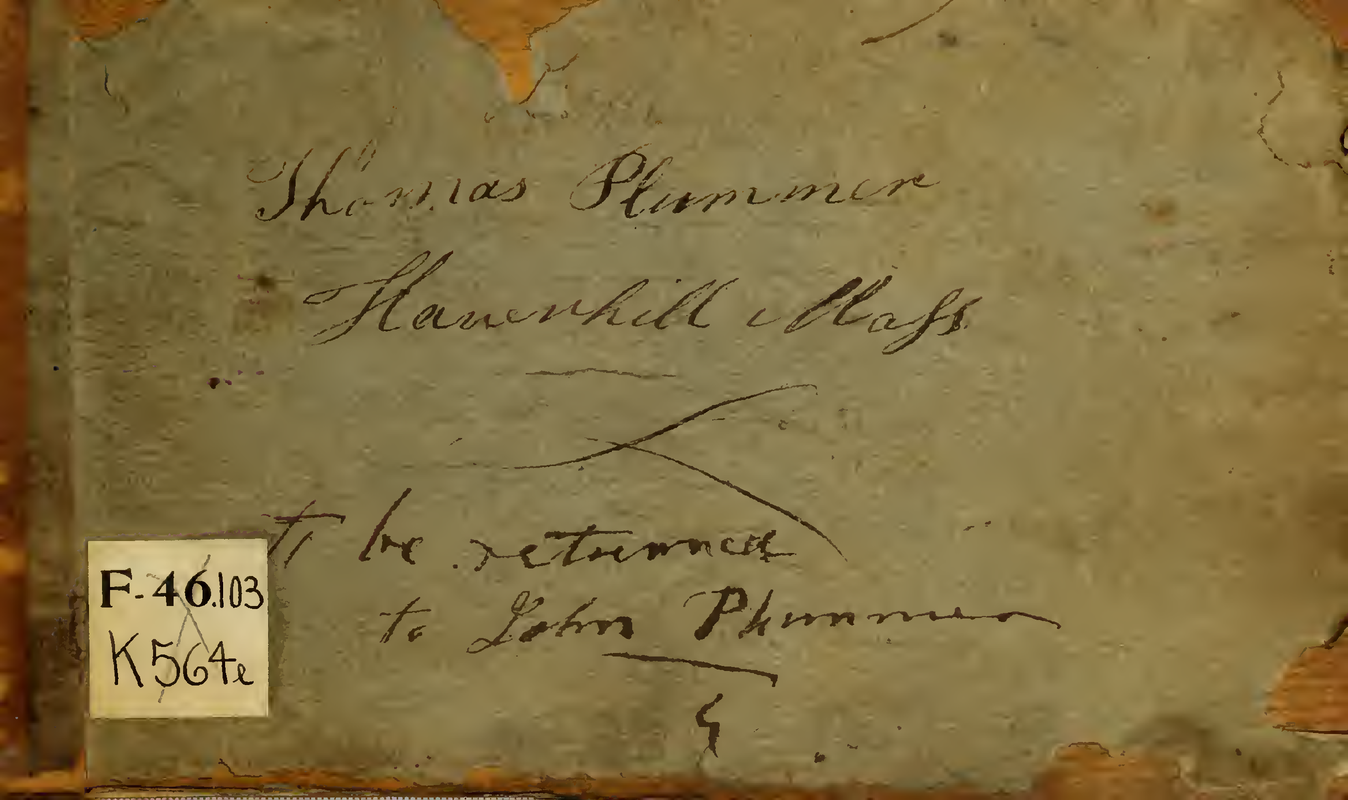 Thomas Plummer
Haverhill Mass
To be returned
to John Plummer
F-46.103
K564e